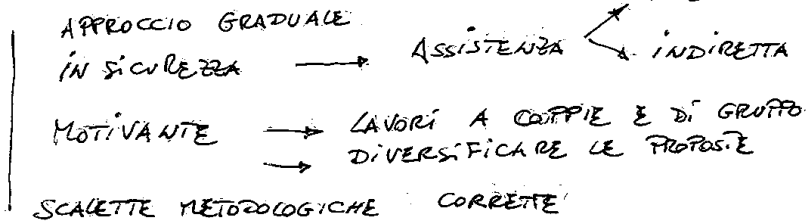 APPROCCIO GRADUALE
IN SICUREZZA → ASSISTENZA → INDIRETTA
MOTIVANTE → LAVORI A COPPIE E DI GRUPPO
→ DIVERSIFICARE LE PROPOSTE
SCALETTE METODOLOGICHE CORRETTE